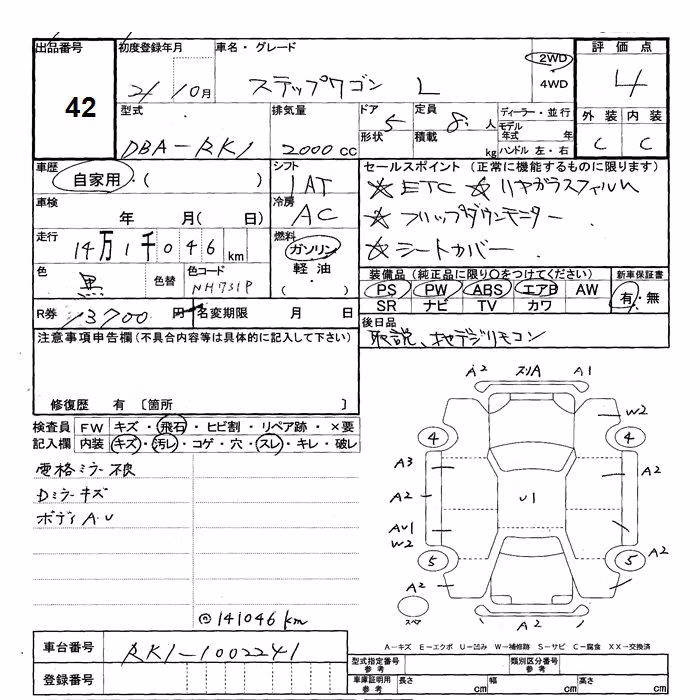 出品番号 初度登録年月 車名・グレード 評価点
42 21/10月 ステップワゴン L 2WD 4WD 4
型式 排気量 ドア 定員 ディーラー・並行 外装 内装
DBA-RK1 2000cc 5 8人 モデル年式 年 C C
形状 積載 kg ハンドル 左・右
車歴 シフト セールスポイント (正常に機能するものに限ります)
自家用・( ) IAT ☆ETC ☆リヤガラスフィルム
車検 冷房 ☆フリップダウンモニター
年 月(日) AC ☆シートカバー
走行 燃料
14万1千046km ガソリン
色 色替 色コード 軽油 装備品 (純正品に限り○をつけてください) 新車保証書
黒 NH731P ・( ) PS PW ABS エアB AW 有・無
SR ナビ TV カワ
R券 13700円 名変期限 月 日 後日品
注意事項申告欄(不具合内容等は具体的に記入して下さい) 取説、地デジリモコン
修復歴 有 〔箇所 〕
検査員 FW キズ・飛石・ヒビ割・リペア跡・×要
記入欄 内装 キズ・汚レ・コゲ・穴・スレ・キレ・破レ
電格ミラー不良
Dミラーキズ
ボディA.U
@141046km
A2 ズリA A1
W2
4 4
A3 A2
A2 U1
AU1
W2
5 5 A2
A2
スペア A2
A-キズ E-エクボ U-凹み W-補修跡 S-サビ C-腐食 XX-交換済
車台番号 RK1-1002241
登録番号
型式指定番号 参考 類別区分番号 参考
車庫証明用 参考 長さ cm 幅 cm 高さ cm